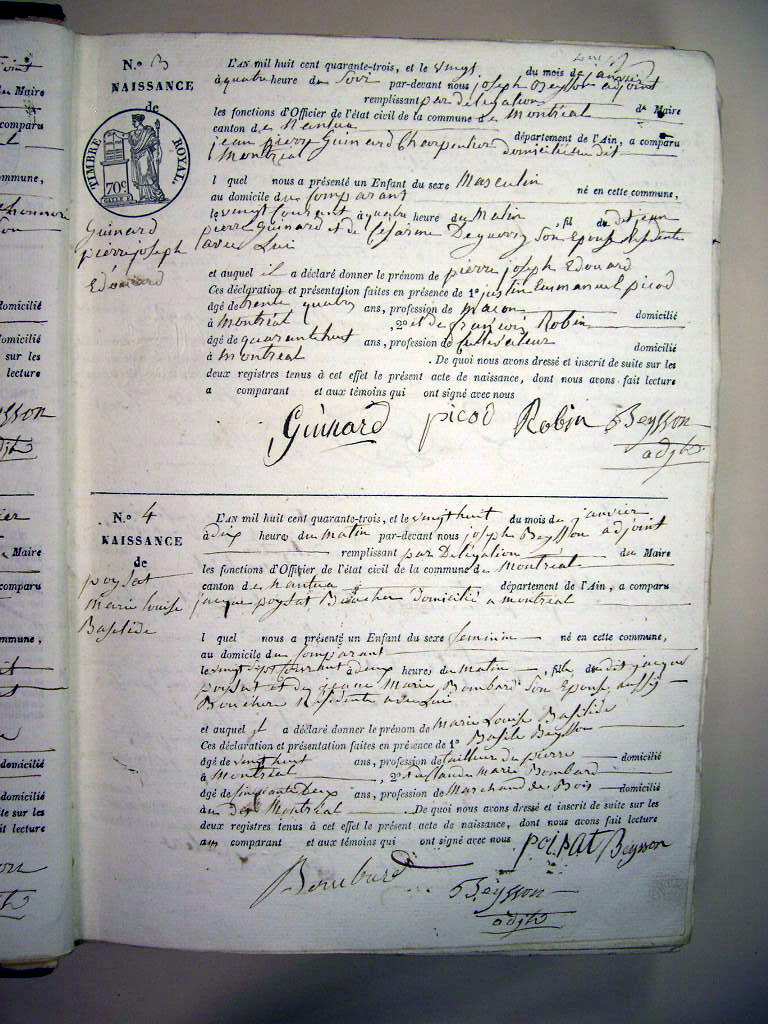 N.o 3
NAISSANCE
de
TIMBRE ROYAL.
70c
Guinard
pierre joseph
Edouard
L'AN mil huit cent quarante-trois, et le vingt du mois de janvier
à quatre heure du Soir par-devant nous joseph Beysson adjoint
remplissant par délégation
les fonctions d'Officier de l'état civil de la commune de Montréal de Maire
canton de Nantua département de l'Ain, a comparu
jean pierre Guinard Charpentier domicilié au dit
Montréal
l quel nous a présenté un Enfant du sexe Masculin
au domicile du Comparant né en cette commune,
le vingt Courant à quatre heure du Matin, fil du dit jean
pierre Guinard et de Cesarine son Epouse résidente
avec Lui
et auquel il a déclaré donner le prénom de pierre joseph Edouard
Ces déclaration et présentation faites en présence de 1o justin Emmanuel picod
âgé de trente quatre ans, profession de Maçon domicilié
à Montréal, 2o et de françois Robin
âgé de quarantehuit ans, profession de Cultivateur domicilié
à Montréal. De quoi nous avons dressé et inscrit de suite sur les
deux registres tenus à cet effet le présent acte de naissance, dont nous avons fait lecture
a comparant et aux témoins qui ont signé avec nous
Guinard picod Robin Beysson
adjt
N.o 4
NAISSANCE
de
poysat
Marie Louise
Basilide
L'AN mil huit cent quarante-trois, et le vingthuit du mois de janvier
à dix heure du Matin par-devant nous joseph Beysson adjoint
remplissant par Délégation du Maire
les fonctions d'Officier de l'état civil de la commune de Montréal
canton de Nantua département de l'Ain, a comparu
jacque poysat Boucher domicilié a montréal
l quel nous a présenté un Enfant du sexe féminin né en cette commune,
au domicile du Comparant
le vingt sept à deux heures du Matin, fille du dit jacque
poysat et de jeanne Marie Bombard son Epouse aussi
Bouchere Résidente avec Lui
et auquel il a déclaré donner le prénom de Marie Louise Basilide
Ces déclaration et présentation faites en présence de 1o Basile Beysson
âgé de vingthuit ans, profession de tailleur de pierre domicilié
à Montréal, 2o et de Claude Marie Bombard
âgé de Cinquante deux ans, profession de Marchand de Bois domicilié
à Montréal. De quoi nous avons dressé et inscrit de suite sur les
deux registres tenus à cet effet le présent acte de naissance, dont nous avons fait lecture
au comparant et aux témoins qui ont signé avec nous poisat Beysson
Bombard
Beysson
adjt